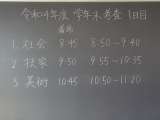 令和4年度 学年末考査 1日目
着席
1. 社会 8:45 8:50-9:40
2. 技家 9:50 9:55-10:35
3. 美術 10:45 10:50-11:20